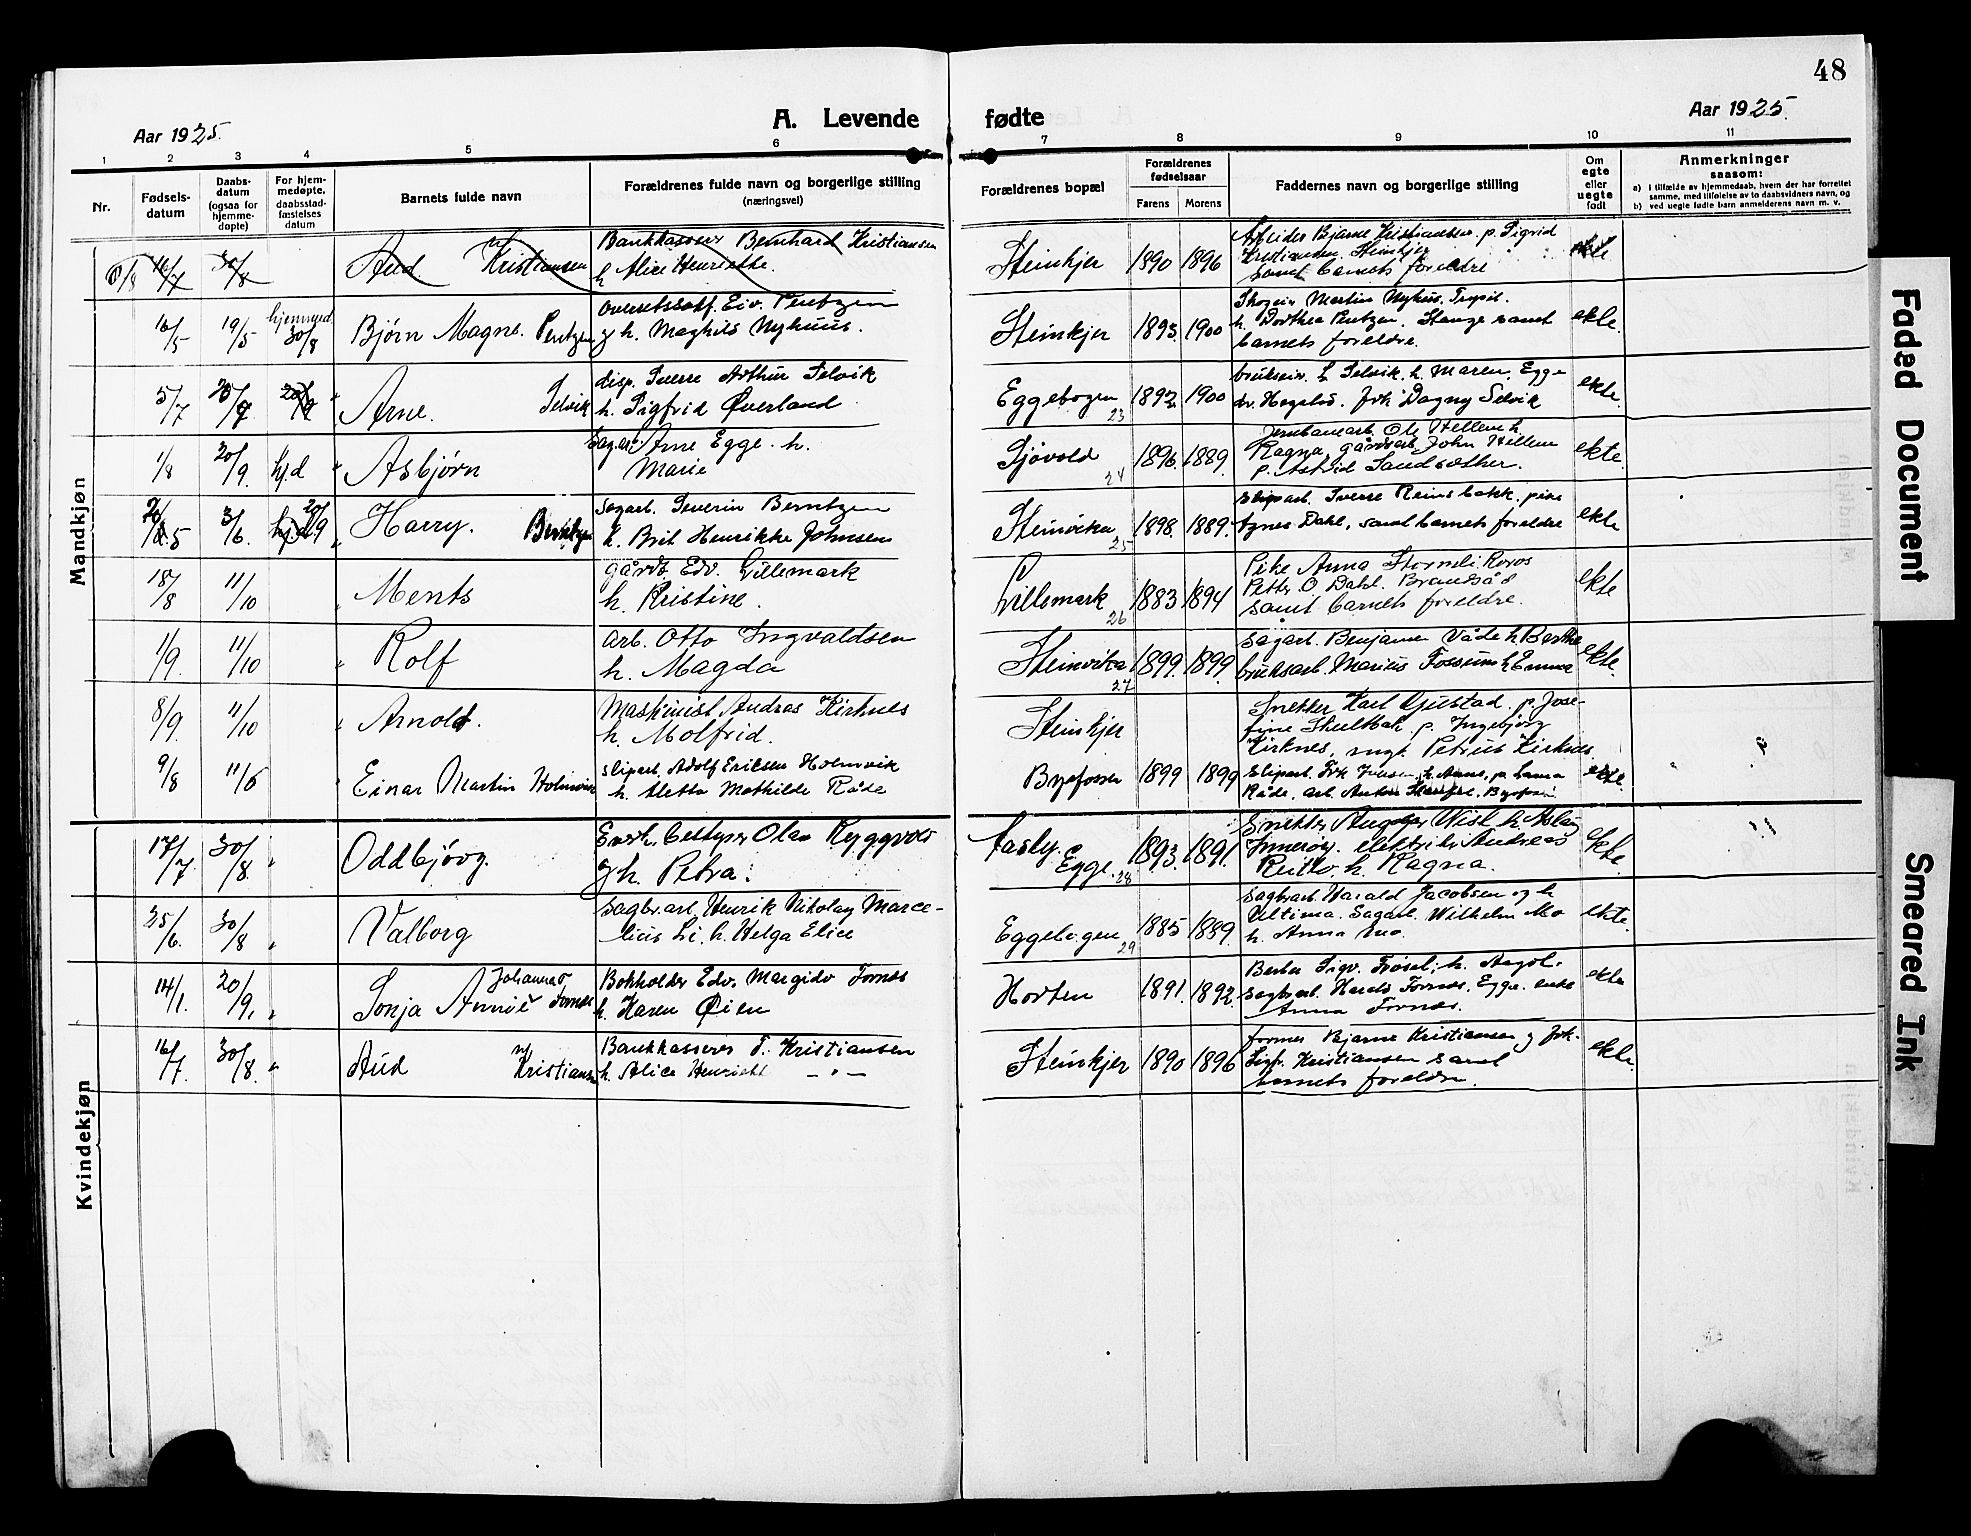 48
Aar 1925.
A. Levende
fødte
Aar 1925.
1 2 3 4 5 6 7 8 9 10 11
Nr.
Fødsels-
datum
Daabs-
datum
(ogsaa for
hjemme-
døpte)
For hjem-
medøpte,
daabsstad-
fæstelses
datum
Barnets fulde navn
Forældrenes fulde navn og borgerlige stilling
(næringsvei)
Forældrenes bopæl
Forældrenes
fødselsaar
Farens Morens
Faddernes navn og borgerlige stilling
Om
egte
eller
uegte
født
Anmerkninger
saasom:
a) i tilfælde av hjemmedaab, hvem der har forrettet
samme, med tilføielse av to daabsvidners navn, og
b) ved uegte fødte barn anmelderens navn m. v.
Mandkjøn
16/7 30/8 Aud Kristiansen
Bankkasserer Bernhard Kristiansen
h. Alice Henriette.
Steinkjer 1890 1896
Arbeider Bjarne Kristiansen p. Sigrid
Kristiansen, Steinkjer
samt barnets foreldre
ekte
16/5 19/5 hjemmed. 30/8 Bjørn Magne. Pentzen
Eiv. Pentzen
g h. Maghild Nyhuus.
Steinkjer 1893 1900
Martin Nyhus, Trysil.
h. Dorthea Pentzen, Stange samt
barnets foreldre.
ekte.
5/7 Arne. Selvik
disp. Sverre Arthur Selvik
h. Sigfrid Øverland
Eggebogen 23 1892 1900
brukseier L. Selvik, h. Maren, Egge
frk Dagny Selvik
ekte.
1/8 20/9. hj.d " Asbjørn
Sagarb. Arne Egge. h.
Marie
Sjövold 24 1896 1889.
Jernbanearb. Ole Hellem h.
Ragna, gårdsarb. John Hellem
p. Astrid Sandsæther.
ekte.
3/6. hj.d 20/9 " Harry. Berntzen
Sagarb. Severin Berntzen
h. Brit Henrikke Johnsen
Steinvika 25 1898. 1889.
Sliparb. Sverre Reinsbakk, pike
Agnes Dahl, samt barnets foreldre
ekte
18/8 11/10 " Ments
gårdb. Edv. Lillemark
h. Kristine.
Lillemark 26 1883 1894
Pike Anna Stormli Røros
Petter O. Dahl. Brandsås
samt barnets foreldre.
ekte
1/9. 11/10 " Rolf
arb. Otto Ingvaldsen
h. Magda
Steinvika 27 1899. 1899.
Sagarb. Benjamin Våde h Berthe
bruksarb. Marius Fossum h Emma
ekte.
8/9. 11/10 " Arnold.
Maskinist Andreas Kirknes
h. Molfrid.
Steinkjer
Snekker Karl Gjustad, p. Jose-
fine p. Ingebjørg
Kirknes, ungk. Petrus Kirknes.
9/8 " Einar Martin Holmvik
Sliparb. Adolf Eriksen Holmvik
h. Aletta Mathilde Råde
Byafossen 1899 1899
Sliparb. h. Anna, p. Laura
Råde, arb. Anton
ekte.
Kvindekjøn
17/7 30/8. " Oddbjörg.
Olav Ryggvold
g h. Petra.
Aasly.
Egge. 28 1893. 1891.
Snekker August Wist h. Aslaug
Inneröy, elektriker Andreas
h. Ragna.
ekte
25/6. 30/8 " Valborg
Sagbr.arb. Henrik Nikolay Marce-
lius Li. h. Helga Elise
Eggebogen 29 1885 1889.
Sagbr.arb Harald Jacobsen og h
Ultima. Sagarb. Wilhelm Mo
h. Anna Mo.
ekte.
14/1. 20/9. " Sonja Annie Johannes Fornes
Bokholder Edv. Margido Fornes
h. Karen Øien
Horten 1891. 1892.
Sigv. h.
Sagbr.arb. Harald Fornes. Egge. enke
Anna Fornes.
ekte
16/7. 30/8. " Aud Kristiansen
Bankkasserer T. Kristiansen
h. Alice Henriette — " —
Steinkjer 1890 1896
former Bjarne Kristiansen g frk.
Sigfr. Kristiansen samt
barnets foreldre.
ekte.
Faded Document
Smeared Ink